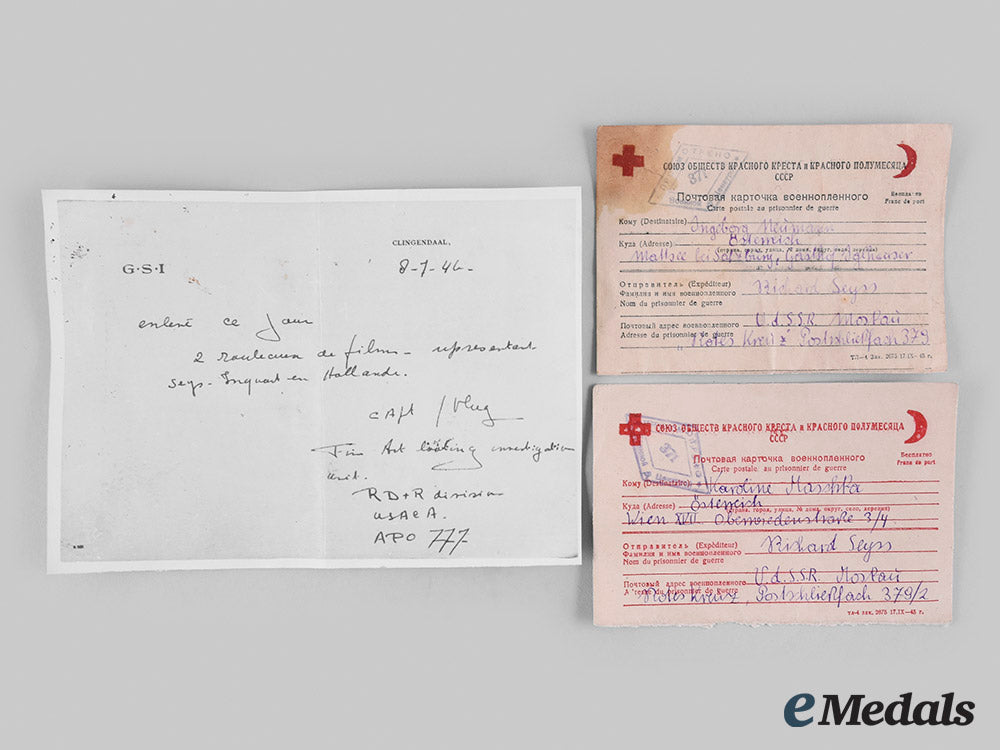 CLINGENDAAL,
G·S·I
8-7-46-
enlevé ce jour
2 rouleaux de films - représentant
Seys-Inquart en Hollande.
Capt Vlug
Fine Art looting investigation
unit.
RD+R division
USACA.
APO 777-
СОЮЗ ОБЩЕСТВ КРАСНОГО КРЕСТА и КРАСНОГО ПОЛУМЕСЯЦА
СССР
Почтовая карточка военнопленного
Carte postale au prisonnier de guerre
Бесплатно
Franc de port
Кому (Destinataire) Ingeborg Neumann
Куда (Adresse) Österreich
(страна, город, улица, № дома, округ, село, деревня)
Mattsee bei Salzburg, Gasthof
Отправитель (Expéditeur) Richard Seyss
Фамилия и имя военнопленного
Nom du prisonnier de guerre
Почтовый адрес военнопленного U.d.S.S.R. Moskau
Adresse du prisonnier de guerre "Rotes Kreuz" Postschließfach 379
ТЛ-4 Зак. 2675 17.IX-45 г.
СОЮЗ ОБЩЕСТВ КРАСНОГО КРЕСТА и КРАСНОГО ПОЛУМЕСЯЦА
СССР
Почтовая карточка военнопленного
Carte postale au prisonnier de guerre
Бесплатно
Franc de port
Кому (Destinataire) Karoline Maschka
Куда (Adresse) Österreich
(страна, город, улица, № дома, округ, село, деревня)
Wien XVII 3/4
Отправитель (Expéditeur) Richard Seyss
Фамилия и имя военнопленного
Nom du prisonnier de guerre
Почтовый адрес военнопленного U.d.S.S.R. Moskau
Adresse du prisonnier de guerre Rotes Kreuz, Postschließfach 379/2
тл-4 зак. 2675 17.IX-45 г.
eMedals